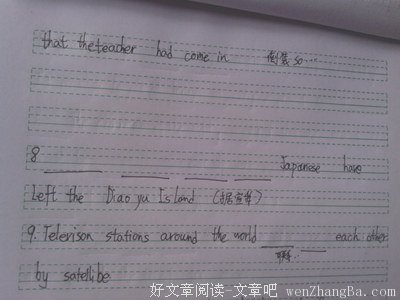 that the teacher had come in 倒装so……
8 ____ ____ ____ ____ Japanese have
Left the Diao yu Island (据宣称)
9. Television stations around the world ____ ____ each other
联系..
by satellibe
好文章阅读-文章吧 wenZhangBa.com